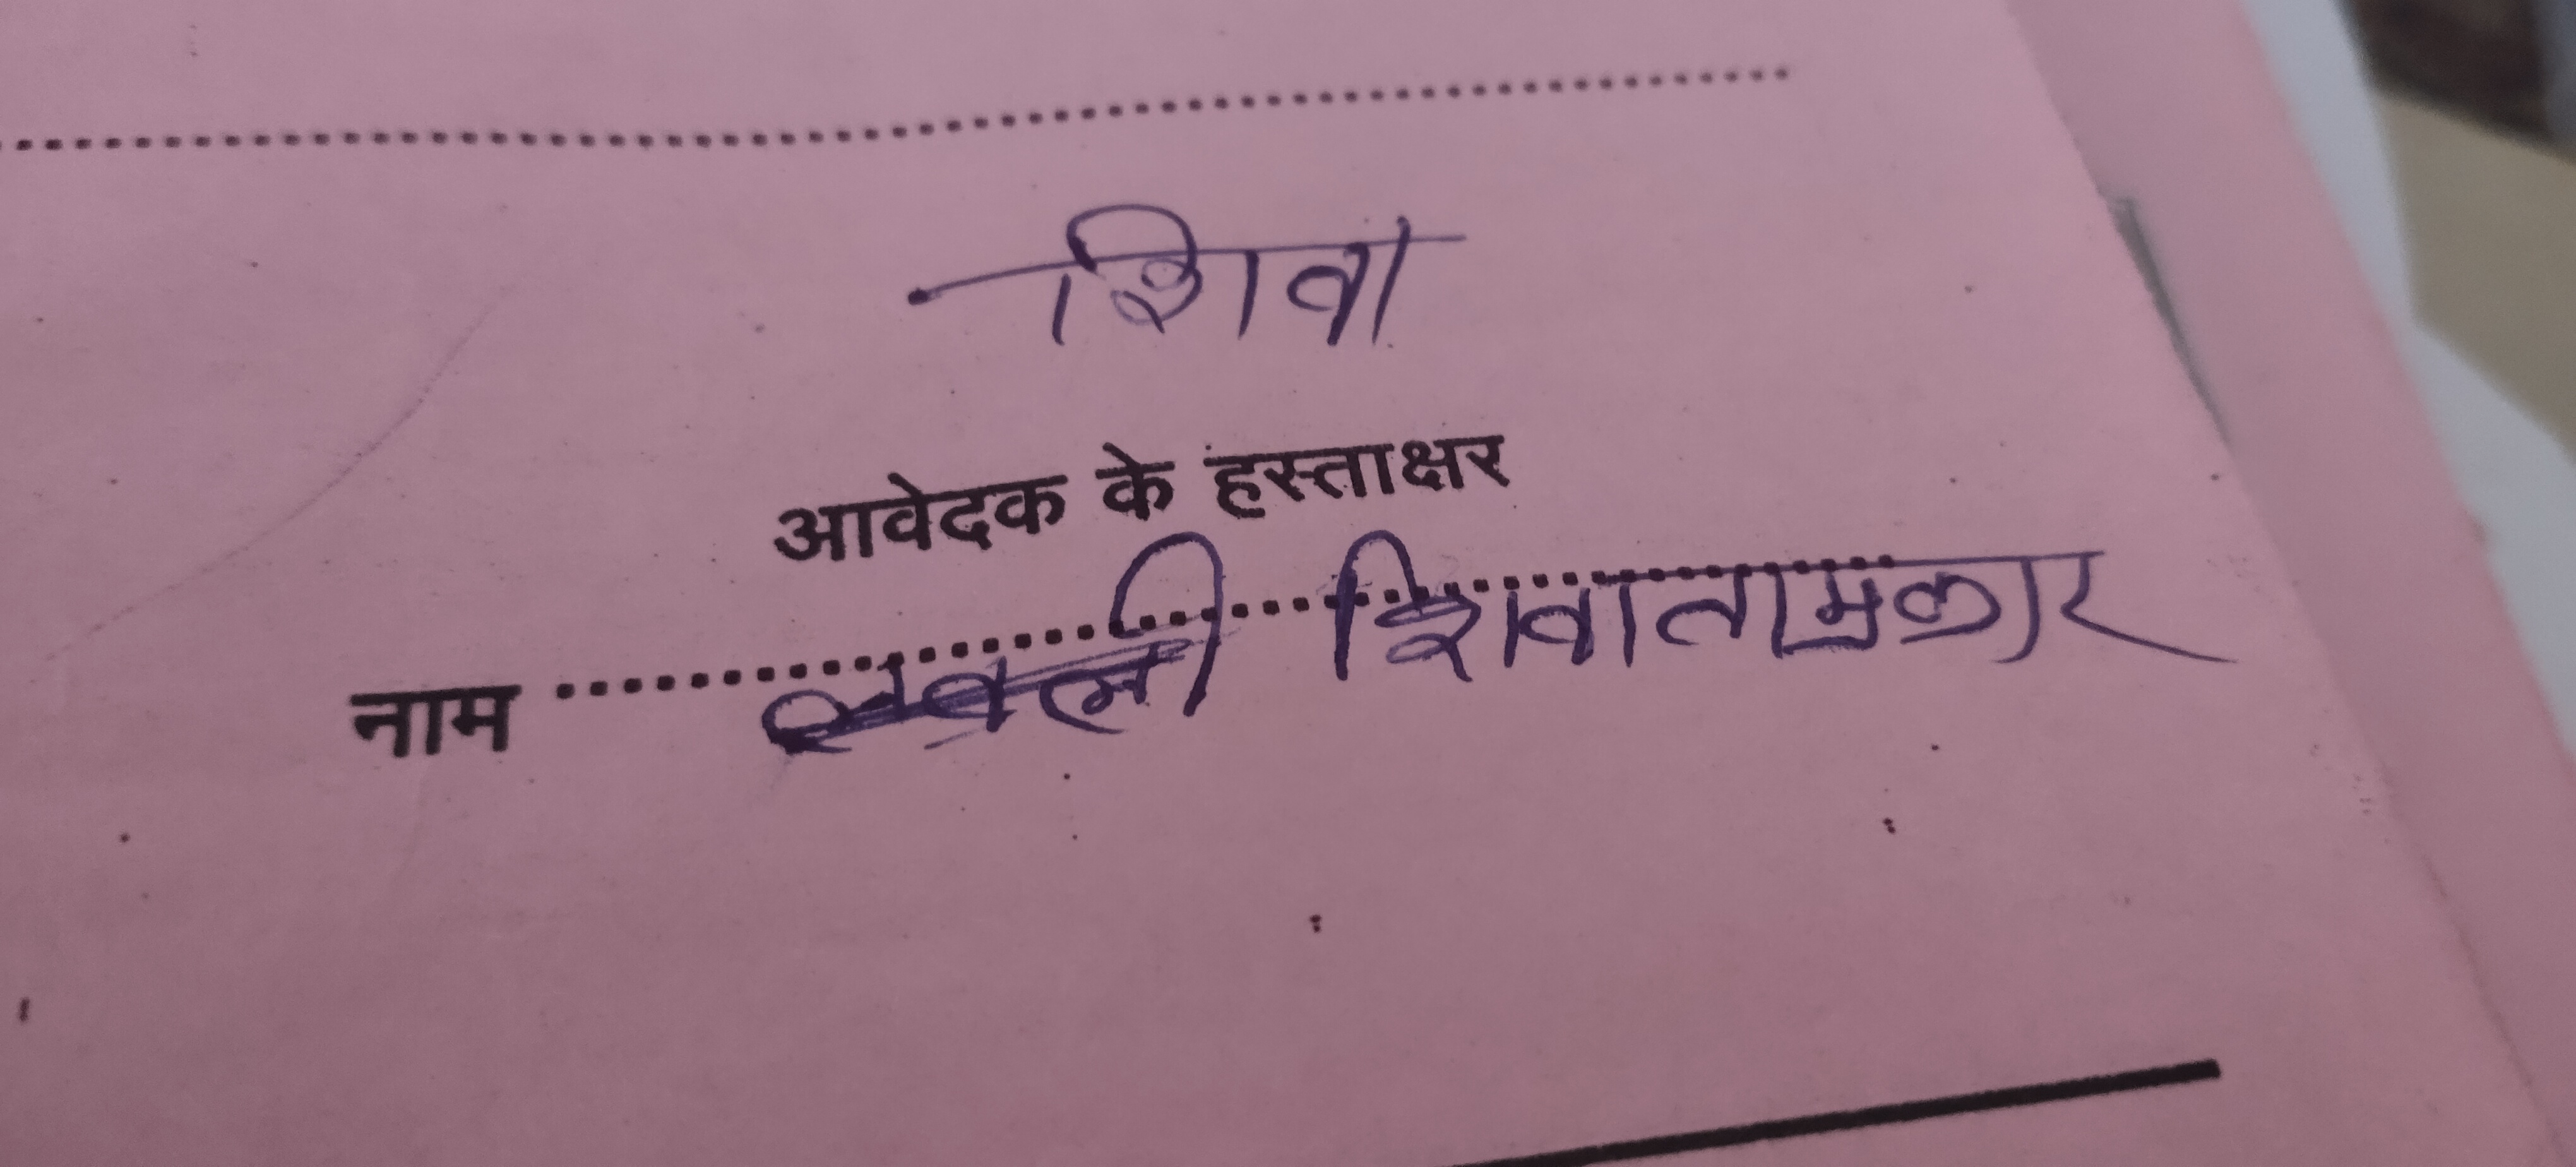 शिवा
आवेदक के हस्ताक्षर
नाम .................. शिवा ताम्रकार